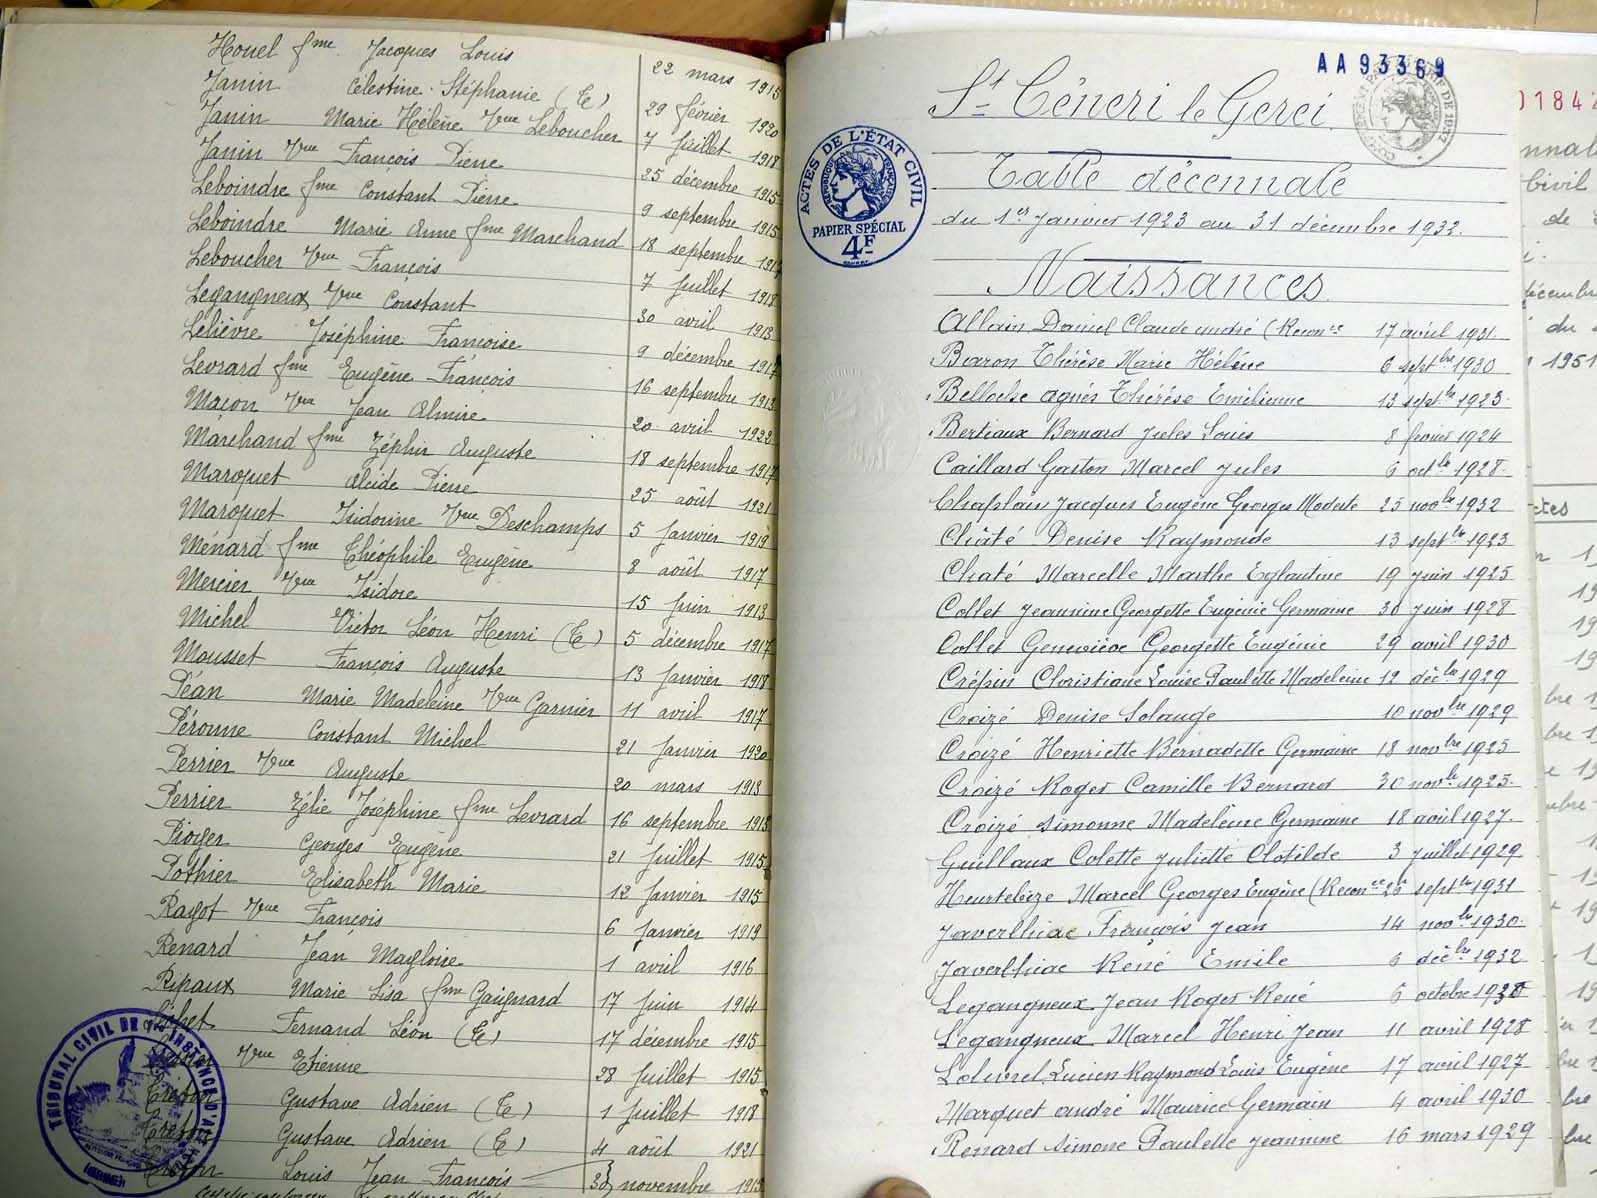 Houel fme Jacques Louis 22 mars 1915
Janin Célestine Stéphanie (E) 29 février 1920
Janin Marie Hélène Vve Leboucher 7 juillet 1918
Janin Vve François Pierre 25 décembre 1915
Leboindre fme Constant Pierre 9 septembre 1915
Leboindre Marie Anne fme Marchand 18 septembre 1917
Leboucher Vve François 7 juillet 1918
Legangneux Vve Constant 30 avril 1913
Lelièvre Joséphine Françoise 9 décembre 1917
Levrard fme Eugène François 16 septembre 1913
Maçon Vve Jean Almire 20 avril 1922
Marchand fme Zéphir Auguste 18 septembre 1917
Maroquet Alcide Pierre 25 août 1921
Maroquet Isidorine Vve Deschamps 5 janvier 1919
Ménard fme Théophile Eugène 8 août 1917
Mercier Vve Isidore 15 juin 1913
Michel Victor Léon Henri (E) 5 décembre 1917
Mousset François Auguste 13 janvier 1918
Péan Marie Madeleine Vve Garnier 11 avril 1917
Péronne Constant Michel 21 janvier 1920
Perrier Vve Auguste 20 mars 1913
Perrier Zélie Joséphine fme Levrard 16 septembre 1913
Pioger Georges Eugène 21 juillet 1915
Pothier Elisabeth Marie 12 janvier 1915
Ragot Vve François 6 janvier 1919
Renard Jean Magloire 1 avril 1916
Ripaux Marie Lisa fme Gaignard 17 juin 1914
Fernand Léon (E) 17 décembre 1915
Vve Etienne 28 juillet 1915
Gustave Adrien (E) 1 juillet 1918
Gustave Adrien (E) 4 août 1921
Louis Jean François 30 novembre 1913
TRIBUNAL CIVIL DE 1re INSTANCE D'
AA93369
0184
St Céneri le Gerei
ACTES DE L'ÉTAT CIVIL
RÉPUBLIQUE FRANÇAISE
PAPIER SPÉCIAL
4F
Table décennale
du 1er janvier 1923 au 31 décembre 1932.
Naissances
Allain Daniel Claude André (Reconce 17 avril 1931.
Baron Thérèse Marie Hélène 6 septbre 1930
Belloche Agnès Thérèse Emilienne 13 septbre 1923
Bertiaux Bernard Jules Louis 8 février 1924
Caillard Gaston Marcel Jules 6 octbre 1928
Chaplain Jacques Eugène Georges Modeste 25 novbre 1932
Châté Denise Raymonde 13 septbre 1923
Chaté Marcelle Marthe Eglantine 19 juin 1925
Collet Jeannine Georgette Eugénie Germaine 30 juin 1928
Collet Geneviève Georgette Eugénie 29 avril 1930
Crépin Christiane Louise Paulette Madeleine 12 décbre 1929
Croizé Denise Solange 10 novbre 1929
Croizé Henriette Bernadette Germaine 18 novbre 1925
Croizé Roger Camille Bernard 30 novbre 1923
Croizé Simonne Madeleine Germaine 18 avril 1927
Guillaux Colette Juliette Clotilde 3 juillet 1929
Heurtebize Marcel Georges Eugène (Reconce 26 septbre 1931
Javerlhiac François Jean 14 novbre 1930
Javerlhiac René Emile 6 décbre 1932
Legangneux Jean Roger René 6 octobre 1928
Legangneux Marcel Henri Jean 11 avril 1928
Lucien Raymond Louis Eugène 17 avril 1927
Marquet André Maurice Germain 4 avril 1930
Renard Simone Paulette Jeannine 16 mars 1929
Civil
de
du
1951